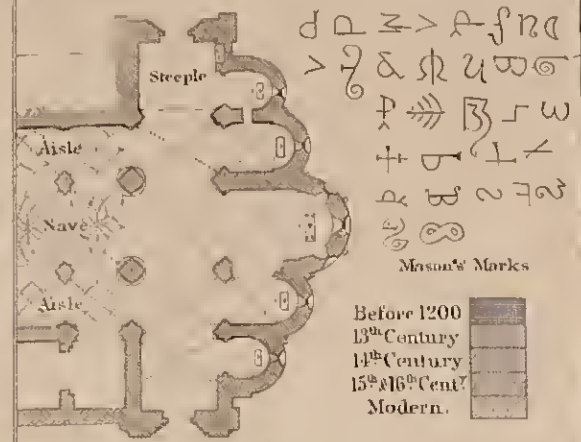 Steeple
Aisle
Nave
Aisle
Mason's Marks
Before 1200
13th Century
14th Century
15th & 16th Cent.y
Modern.